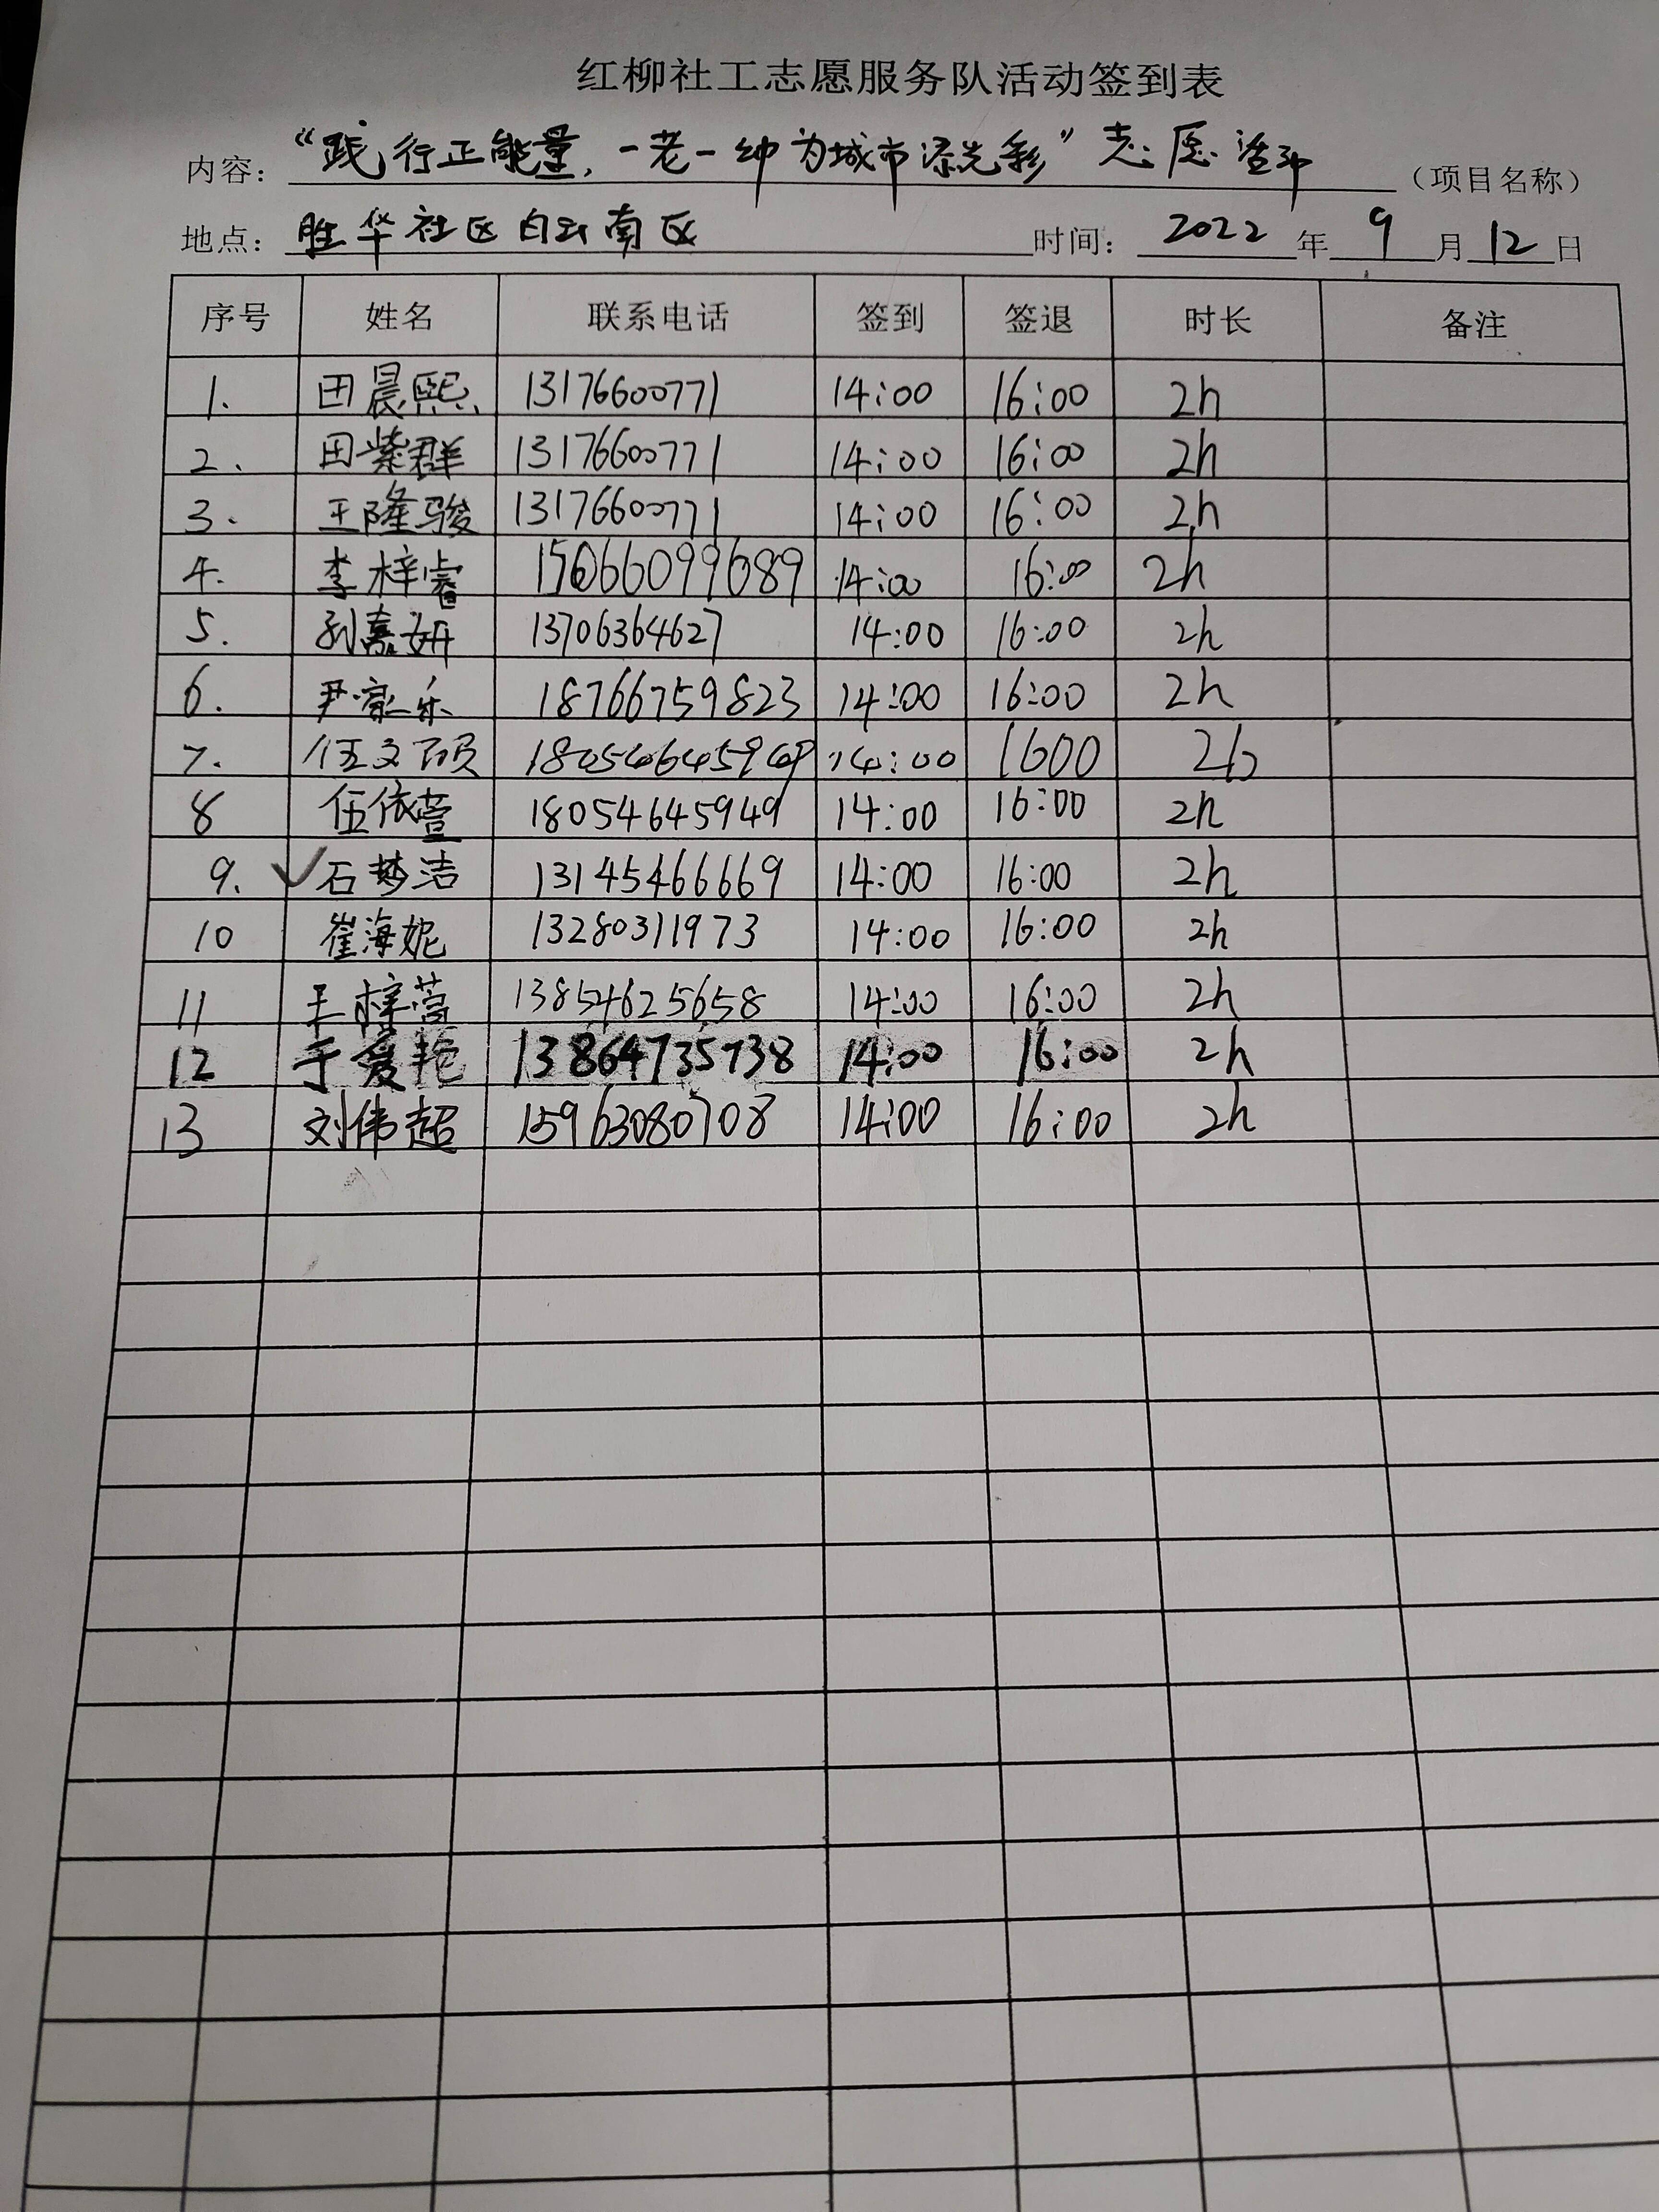 红柳社工志愿服务队活动签到表
内容：“践行正能量，一老一幼为城市添光彩”志愿活动（项目名称）
地点：胜华社区白云南区 时间：2022年9月12日
序号 姓名 联系电话 签到 签退 时长 备注
1. 田晨熙 13176600771 14:00 16:00 2h
2. 田紫群 13176600771 14:00 16:00 2h
3. 王隆骏 13176600771 14:00 16:00 2h
4. 李梓睿 15066099689 14:00 16:00 2h
5. 刘嘉妍 13706364627 14:00 16:00 2h
6. 尹歆乐 18766759823 14:00 16:00 2h
7. 伍文硕 18054645949 14:00 1600 2h
8 伍依萱 18054645949 14:00 16:00 2h
9. ✓石梦洁 13145466669 14:00 16:00 2h
10 崔海妮 13280311973 14:00 16:00 2h
11 王梓萱 13854625658 14:00 16:00 2h
12 于爱艳 13864735738 14:00 16:00 2h
13 刘伟超 15963080708 14:00 16:00 2h